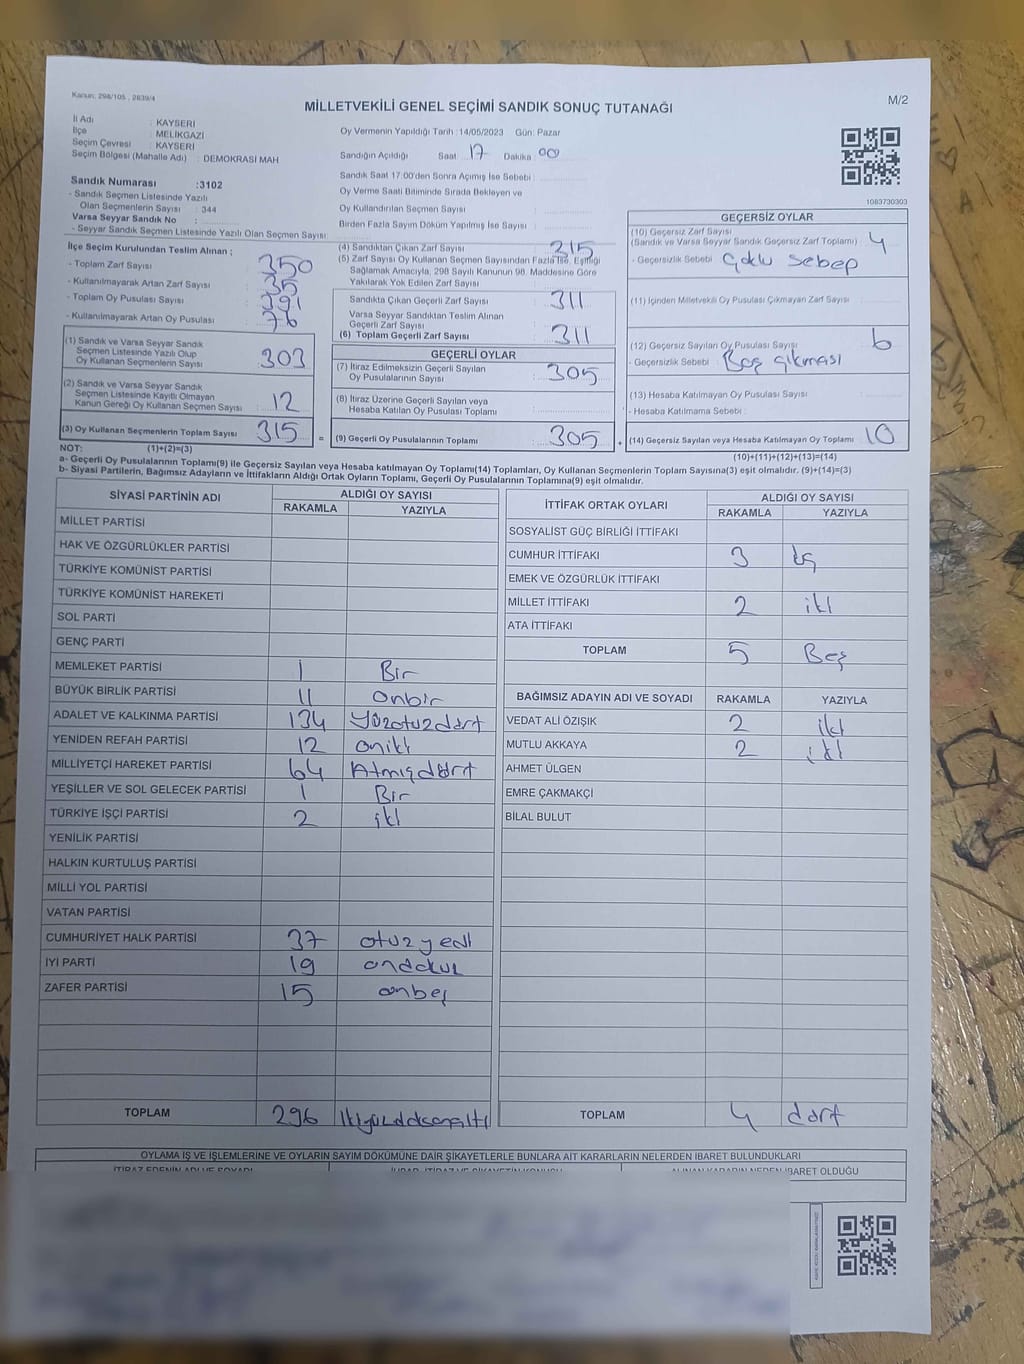 Kanun: 298/105 , 2839/4
M/2
MİLLETVEKİLİ GENEL SEÇİMİ SANDIK SONUÇ TUTANAĞI
İl Adı : KAYSERİ
İlçe : MELİKGAZİ
Seçim Çevresi : KAYSERİ
Seçim Bölgesi (Mahalle Adı) : DEMOKRASİ MAH
Sandık Numarası :3102
- Sandık Seçmen Listesinde Yazılı
Olan Seçmenlerin Sayısı : 344
Varsa Seyyar Sandık No :
- Seyyar Sandık Seçmen Listesinde Yazılı Olan Seçmen Sayısı:
Oy Vermenin Yapıldığı Tarih :14/05/2023 Gün: Pazar
Sandığın Açıldığı Saat: 17 Dakika: 00
Sandık Saat 17:00'den Sonra Açımış İse Sebebi :
Oy Verme Saati Bitiminde Sırada Bekleyen ve
Oy Kullandırılan Seçmen Sayısı :
Birden Fazla Sayım Döküm Yapılmış İse Sayısı :
1083730303
İlçe Seçim Kurulundan Teslim Alınan ;
- Toplam Zarf Sayısı : 350
- Kullanılmayarak Artan Zarf Sayısı : 35
- Toplam Oy Pusulası Sayısı : 391
- Kullanılmayarak Artan Oy Pusulası : 76
(1) Sandık ve Varsa Seyyar Sandık
Seçmen Listesinde Yazılı Olup
Oy Kullanan Seçmenlerin Sayısı : 303
(2) Sandık ve Varsa Seyyar Sandık
Seçmen Listesinde Kayıtlı Olmayan
Kanun Gereği Oy Kullanan Seçmen Sayısı : 12
(3) Oy Kullanan Seçmenlerin Toplam Sayısı : 315 =
(4) Sandıktan Çıkan Zarf Sayısı : 315
(5) Zarf Sayısı Oy Kullanan Seçmen Sayısından Fazla İse, Eşitliği
Sağlamak Amacıyla, 298 Sayılı Kanunun 98. Maddesine Göre
Yakılarak Yok Edilen Zarf Sayısı :
Sandıkta Çıkan Geçerli Zarf Sayısı : 311
Varsa Seyyar Sandıktan Teslim Alınan
Geçerli Zarf Sayısı :
(6) Toplam Geçerli Zarf Sayısı : 311
GEÇERLİ OYLAR
(7) İtiraz Edilmeksizin Geçerli Sayılan
Oy Pusulalarının Sayısı : 305
(8) İtiraz Üzerine Geçerli Sayılan veya
Hesaba Katılan Oy Pusulası Toplamı :
(9) Geçerli Oy Pusulalarının Toplamı : 305 +
GEÇERSİZ OYLAR
(10) Geçersiz Zarf Sayısı
(Sandık ve Varsa Seyyar Sandık Geçersiz Zarf Toplamı) : 4
- Geçersizlik Sebebi : Çoklu sebep
(11) İçinden Milletvekili Oy Pusulası Çıkmayan Zarf Sayısı :
(12) Geçersiz Sayılan Oy Pusulası Sayısı : 6
- Geçersizlik Sebebi : Boş çıkması
(13) Hesaba Katılmayan Oy Pusulası Sayısı :
- Hesaba Katılmama Sebebi :
(14) Geçersiz Sayılan veya Hesaba Katılmayan Oy Toplamı : 10
NOT: (1)+(2)=(3)
(10)+(11)+(12)+(13)=(14)
a- Geçerli Oy Pusulalarının Toplamı(9) ile Geçersiz Sayılan veya Hesaba katılmayan Oy Toplamı(14) Toplamları, Oy Kullanan Seçmenlerin Toplam Sayısına(3) eşit olmalıdır. (9)+(14)=(3)
b- Siyasi Partilerin, Bağımsız Adayların ve İttifakların Aldığı Ortak Oyların Toplamı, Geçerli Oy Pusulalarının Toplamına(9) eşit olmalıdır.
SİYASİ PARTİNİN ADI ALDIĞI OY SAYISI
RAKAMLA YAZIYLA
MİLLET PARTİSİ
HAK VE ÖZGÜRLÜKLER PARTİSİ
TÜRKİYE KOMÜNİST PARTİSİ
TÜRKİYE KOMÜNİST HAREKETİ
SOL PARTİ
GENÇ PARTİ
MEMLEKET PARTİSİ 1 Bir
BÜYÜK BİRLİK PARTİSİ 11 onbir
ADALET VE KALKINMA PARTİSİ 134 Yüzotuzdört
YENİDEN REFAH PARTİSİ 12 oniki
MİLLİYETÇİ HAREKET PARTİSİ 64 Atmışdört
YEŞİLLER VE SOL GELECEK PARTİSİ 1 Bir
TÜRKİYE İŞÇİ PARTİSİ 2 iki
YENİLİK PARTİSİ
HALKIN KURTULUŞ PARTİSİ
MİLLİ YOL PARTİSİ
VATAN PARTİSİ
CUMHURİYET HALK PARTİSİ 37 otuzyedi
İYİ PARTİ 19 ondokuz
ZAFER PARTİSİ 15 onbeş
TOPLAM 296 ikiyüzdoksanaltı
İTTİFAK ORTAK OYLARI ALDIĞI OY SAYISI
RAKAMLA YAZIYLA
SOSYALİST GÜÇ BİRLİĞİ İTTİFAKI
CUMHUR İTTİFAKI 3 üç
EMEK VE ÖZGÜRLÜK İTTİFAKI
MİLLET İTTİFAKI 2 iki
ATA İTTİFAKI
TOPLAM 5 Beş
BAĞIMSIZ ADAYIN ADI VE SOYADI RAKAMLA YAZIYLA
VEDAT ALİ ÖZIŞIK 2 iki
MUTLU AKKAYA 2 iki
AHMET ÜLGEN
EMRE ÇAKMAKÇİ
BİLAL BULUT
TOPLAM 4 dört
OYLAMA İŞ VE İŞLEMLERİNE VE OYLARIN SAYIM DÖKÜMÜNE DAİR ŞİKAYETLERLE BUNLARA AİT KARARLARIN NELERDEN İBARET BULUNDUKLARI
İTİRAZ EDENİN ADI VE SOYADI ALINAN KARARIN NEDEN İBARET OLDUĞU